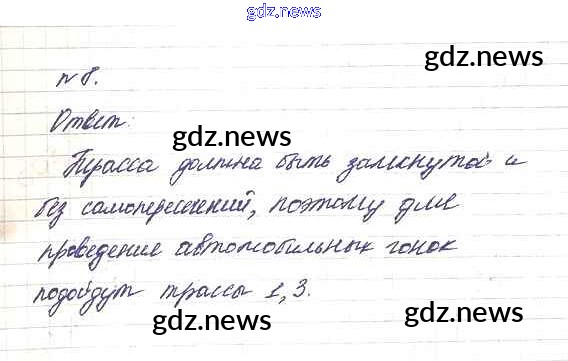 gdz.news
gdz.news
№ 8.
Ответ:
gdz.news
Трасса должна быть замкнутой и
без самопересечений, поэтому для
проведение автомобильных гонок
подойдут трассы 1, 3.
gdz.news
gdz.news